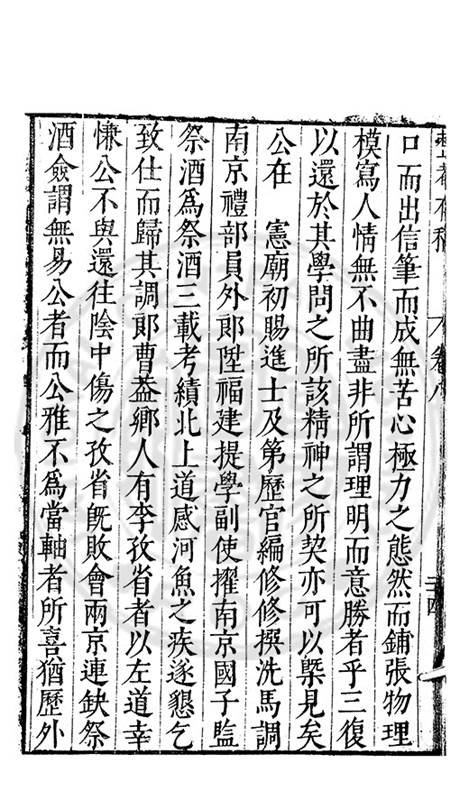 口而出信筆而成無苦心極力之態然而鋪張物理
模寫人情無不曲盡非所謂理明而意勝者乎三復
以還於其學問之所該精神之所契亦可以槩見矣
公在　憲廟初賜進士及第歷官編修修撰洗馬調
南京禮部員外郎陞福建提學副使擢南京國子監
祭酒爲祭酒三載考績北上道感河魚之疾遂懇乞
致仕而歸其調郎曹葢鄉人有李孜省者以左道幸
慊公不與還往陰中傷之孜省旣敗會兩京連缺祭
酒僉謂無易公者而公雅不爲當軸者所喜猶歷外